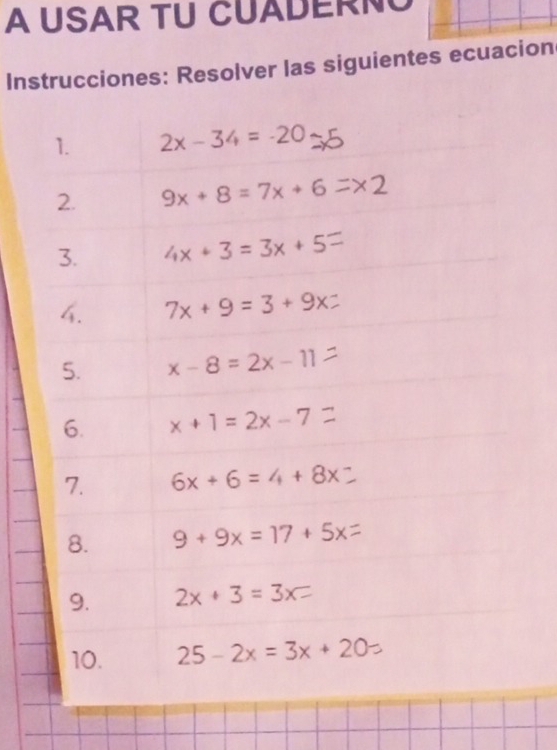 A USAR TU CUADERNO
Instrucciones: Resolver las siguientes ecuacion
1. 2x - 34 = -20 =
2. 9x + 8 = 7x + 6 =x2
3. 4x + 3 = 3x + 5=
4. 7x + 9 = 3 + 9x=
5. x - 8 = 2x - 11 =
6. x + 1 = 2x - 7 =
7. 6x + 6 = 4 + 8x=
8. 9 + 9x = 17 + 5x=
9. 2x + 3 = 3x=
10. 25 - 2x = 3x + 20=